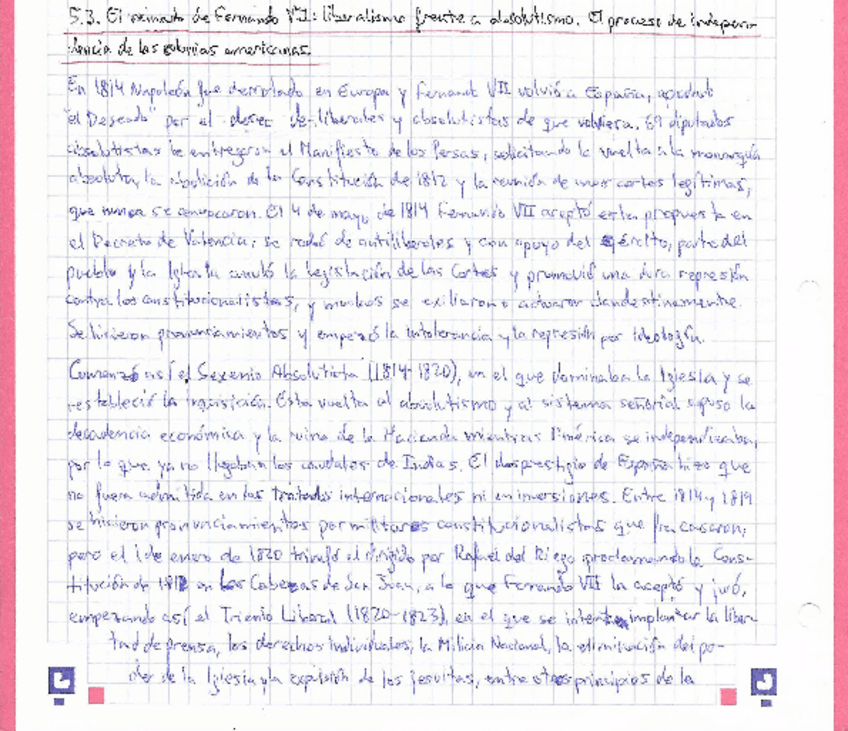 5.3. El reinado de Fernando VII: liberalismo frente a absolutismo. El proceso de indepen-
dencia de las colonias americanas.
En 1814 Napoleón fue derrotado en Europa y Fernando VII volvió a España, apodado
"el Deseado" por el deseo de liberales y absolutistas de que volviera. 69 diputados
absolutistas le entregaron el Manifiesto de los Persas, solicitando la vuelta a la monarquía
absoluta, la abolición de la Constitución de 1812 y la reunión de unas cortes legítimas,
que nunca se convocaron. El 4 de mayo de 1814 Fernando VII aceptó esta propuesta en
el Decreto de Valencia: se rodeó de antiliberales y con apoyo del ejército, parte del
pueblo y la Iglesia anuló la legislación de las Cortes y promovió una dura represión
contra los constitucionalistas, y muchos se exiliaron o actuaron clandestinamente.
Se hicieron pronunciamientos y empezó la intolerancia y la represión por ideología.
Comenzó así el Sexenio Absolutista (1814-1820), en el que dominaba la Iglesia y se
restableció la inquisición. Esta vuelta al absolutismo y al sistema señorial supuso la
decadencia económica y la ruina de la Hacienda mientras América se independizaba,
por lo que ya no llegaban los caudales de Indias. El desprestigio de España hizo que
no fuera admitida en los tratados internacionales ni en inversiones. Entre 1814 y 1819
se hicieron pronunciamientos por militares constitucionalistas que fracasaron,
pero el 1 de enero de 1820 triunfó el dirigido por Rafael del Riego proclamando la Cons-
titución de 1812 en las Cabezas de San Juan, a lo que Fernando VII la aceptó y juró,
empezando así el Trienio Liberal (1820-1823), en el que se intenta implantar la liber-
tad de prensa, los derechos individuales, la Milicia Nacional, la eliminación del po-
der de la Iglesia y la expulsión de los jesuitas, entre otros principios de la